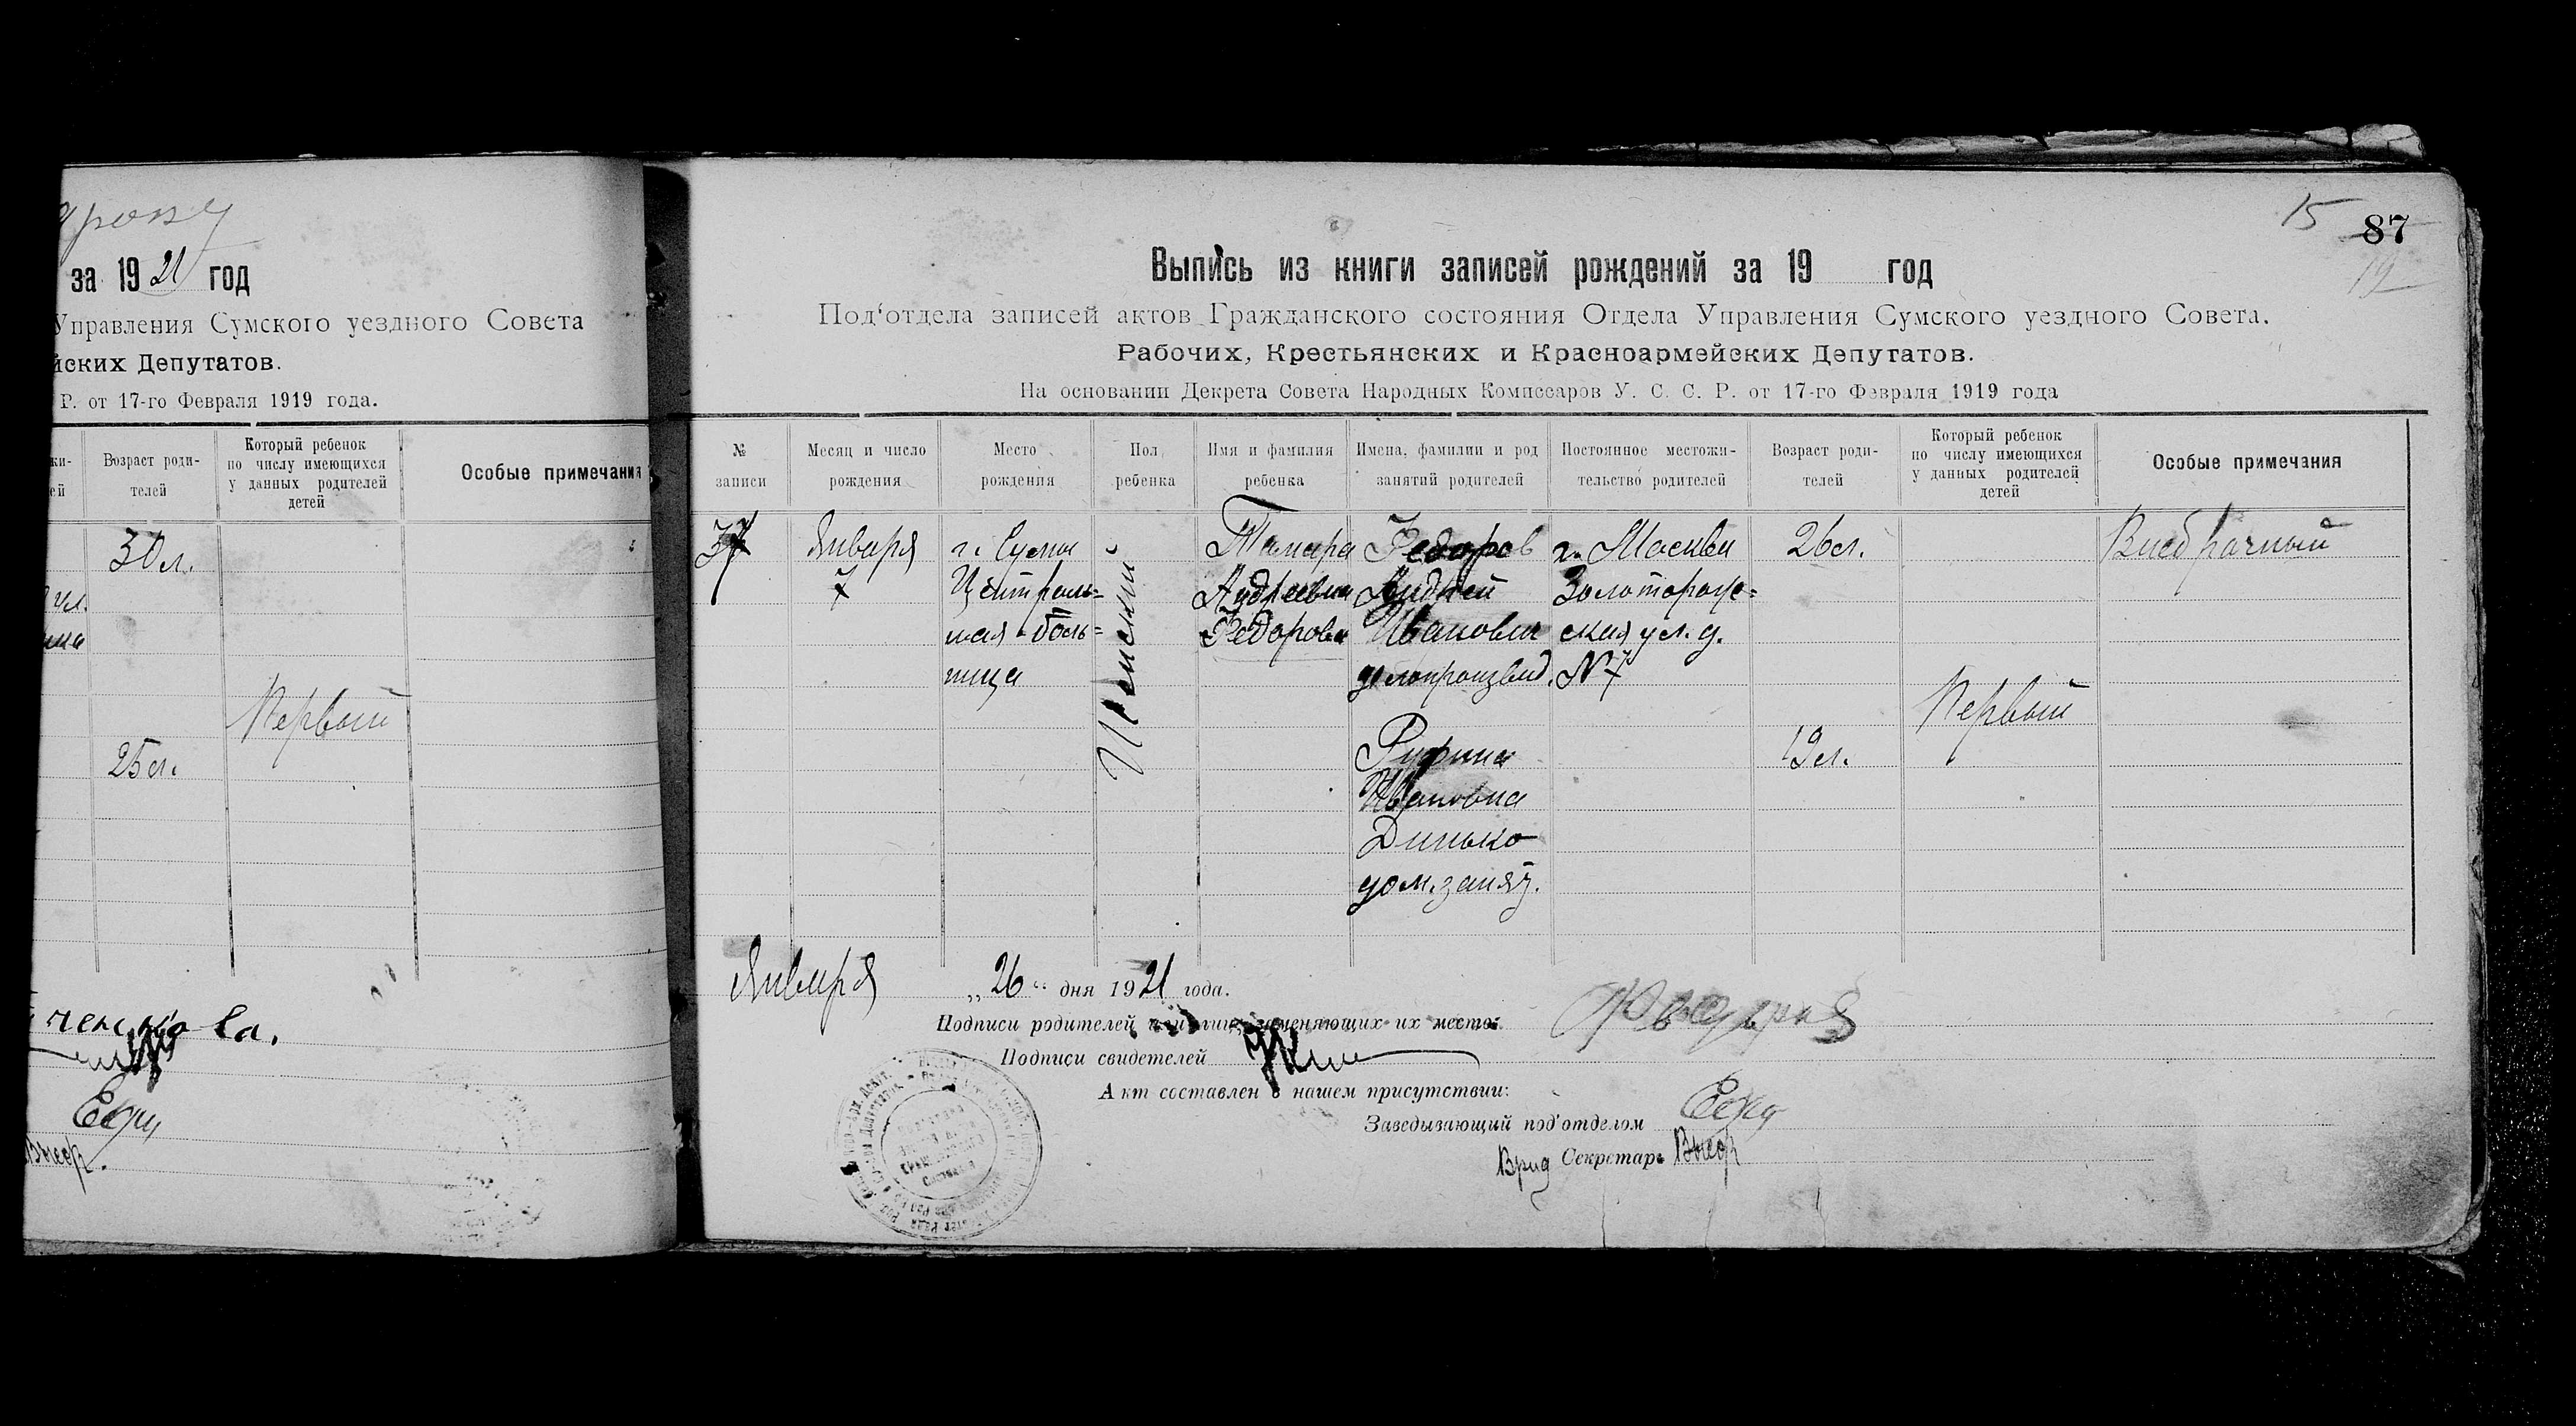 за 1921 год
Управления Сумского уездного Совета
йских Депутатов.
Р. от 17-го Февраля 1919 года.
Возраст роди-
телей
Который ребенок
по числу имеющихся
у данных родителей
детей
Особые примечания
30 л.
Первый
25 л.
15
87
Выпись из книги записей рождений за 19 год
Под'отдела записей актов Гражданского состояния Отдела Управления Сумского уездного Совета.
Рабочих, Крестьянских и Красноармейских Депутатов.
На основании Декрета Совета Народных Комиссаров У. С. С. Р. от 17-го Февраля 1919 года
№
записи
Месяц и число
рождения
Место
рождения
Пол
ребенка
Имя и фамилия
ребенка
Имена, фамилии и род
занятий родителей
Постоянное местожи-
тельство родителей
Возраст роди-
телей
Который ребенок
по числу имеющихся
у данных родителей
детей
Особые примечания
Января
7
г. Сумы
Централь=
ная боль=
ница
Женский
Тамара
Андреевна
Федорова
Федоров
Андрей
Иванович
делопроизвод.
Руфина
Ивановна
Динько
дом. занят.
г. Москва
Золоторож=
ская ул. д.
№ 7
26 л.
19 л.
Первый
Внебрачный
Января „26“ дня 1921 года.
Подписи родителей или лиц, заменяющих их место:
Подписи свидетелей
Акт составлен в нашем присутствии:
Заведывающий под'отделом
Врид Секретарь